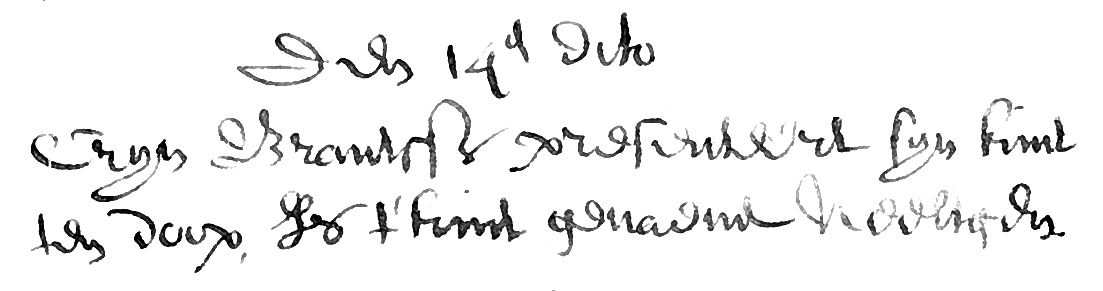 Den 14d dito
Cryn Brantsz presenteert syn kint
ten doop, Is t' kint genaemt Neeltgen